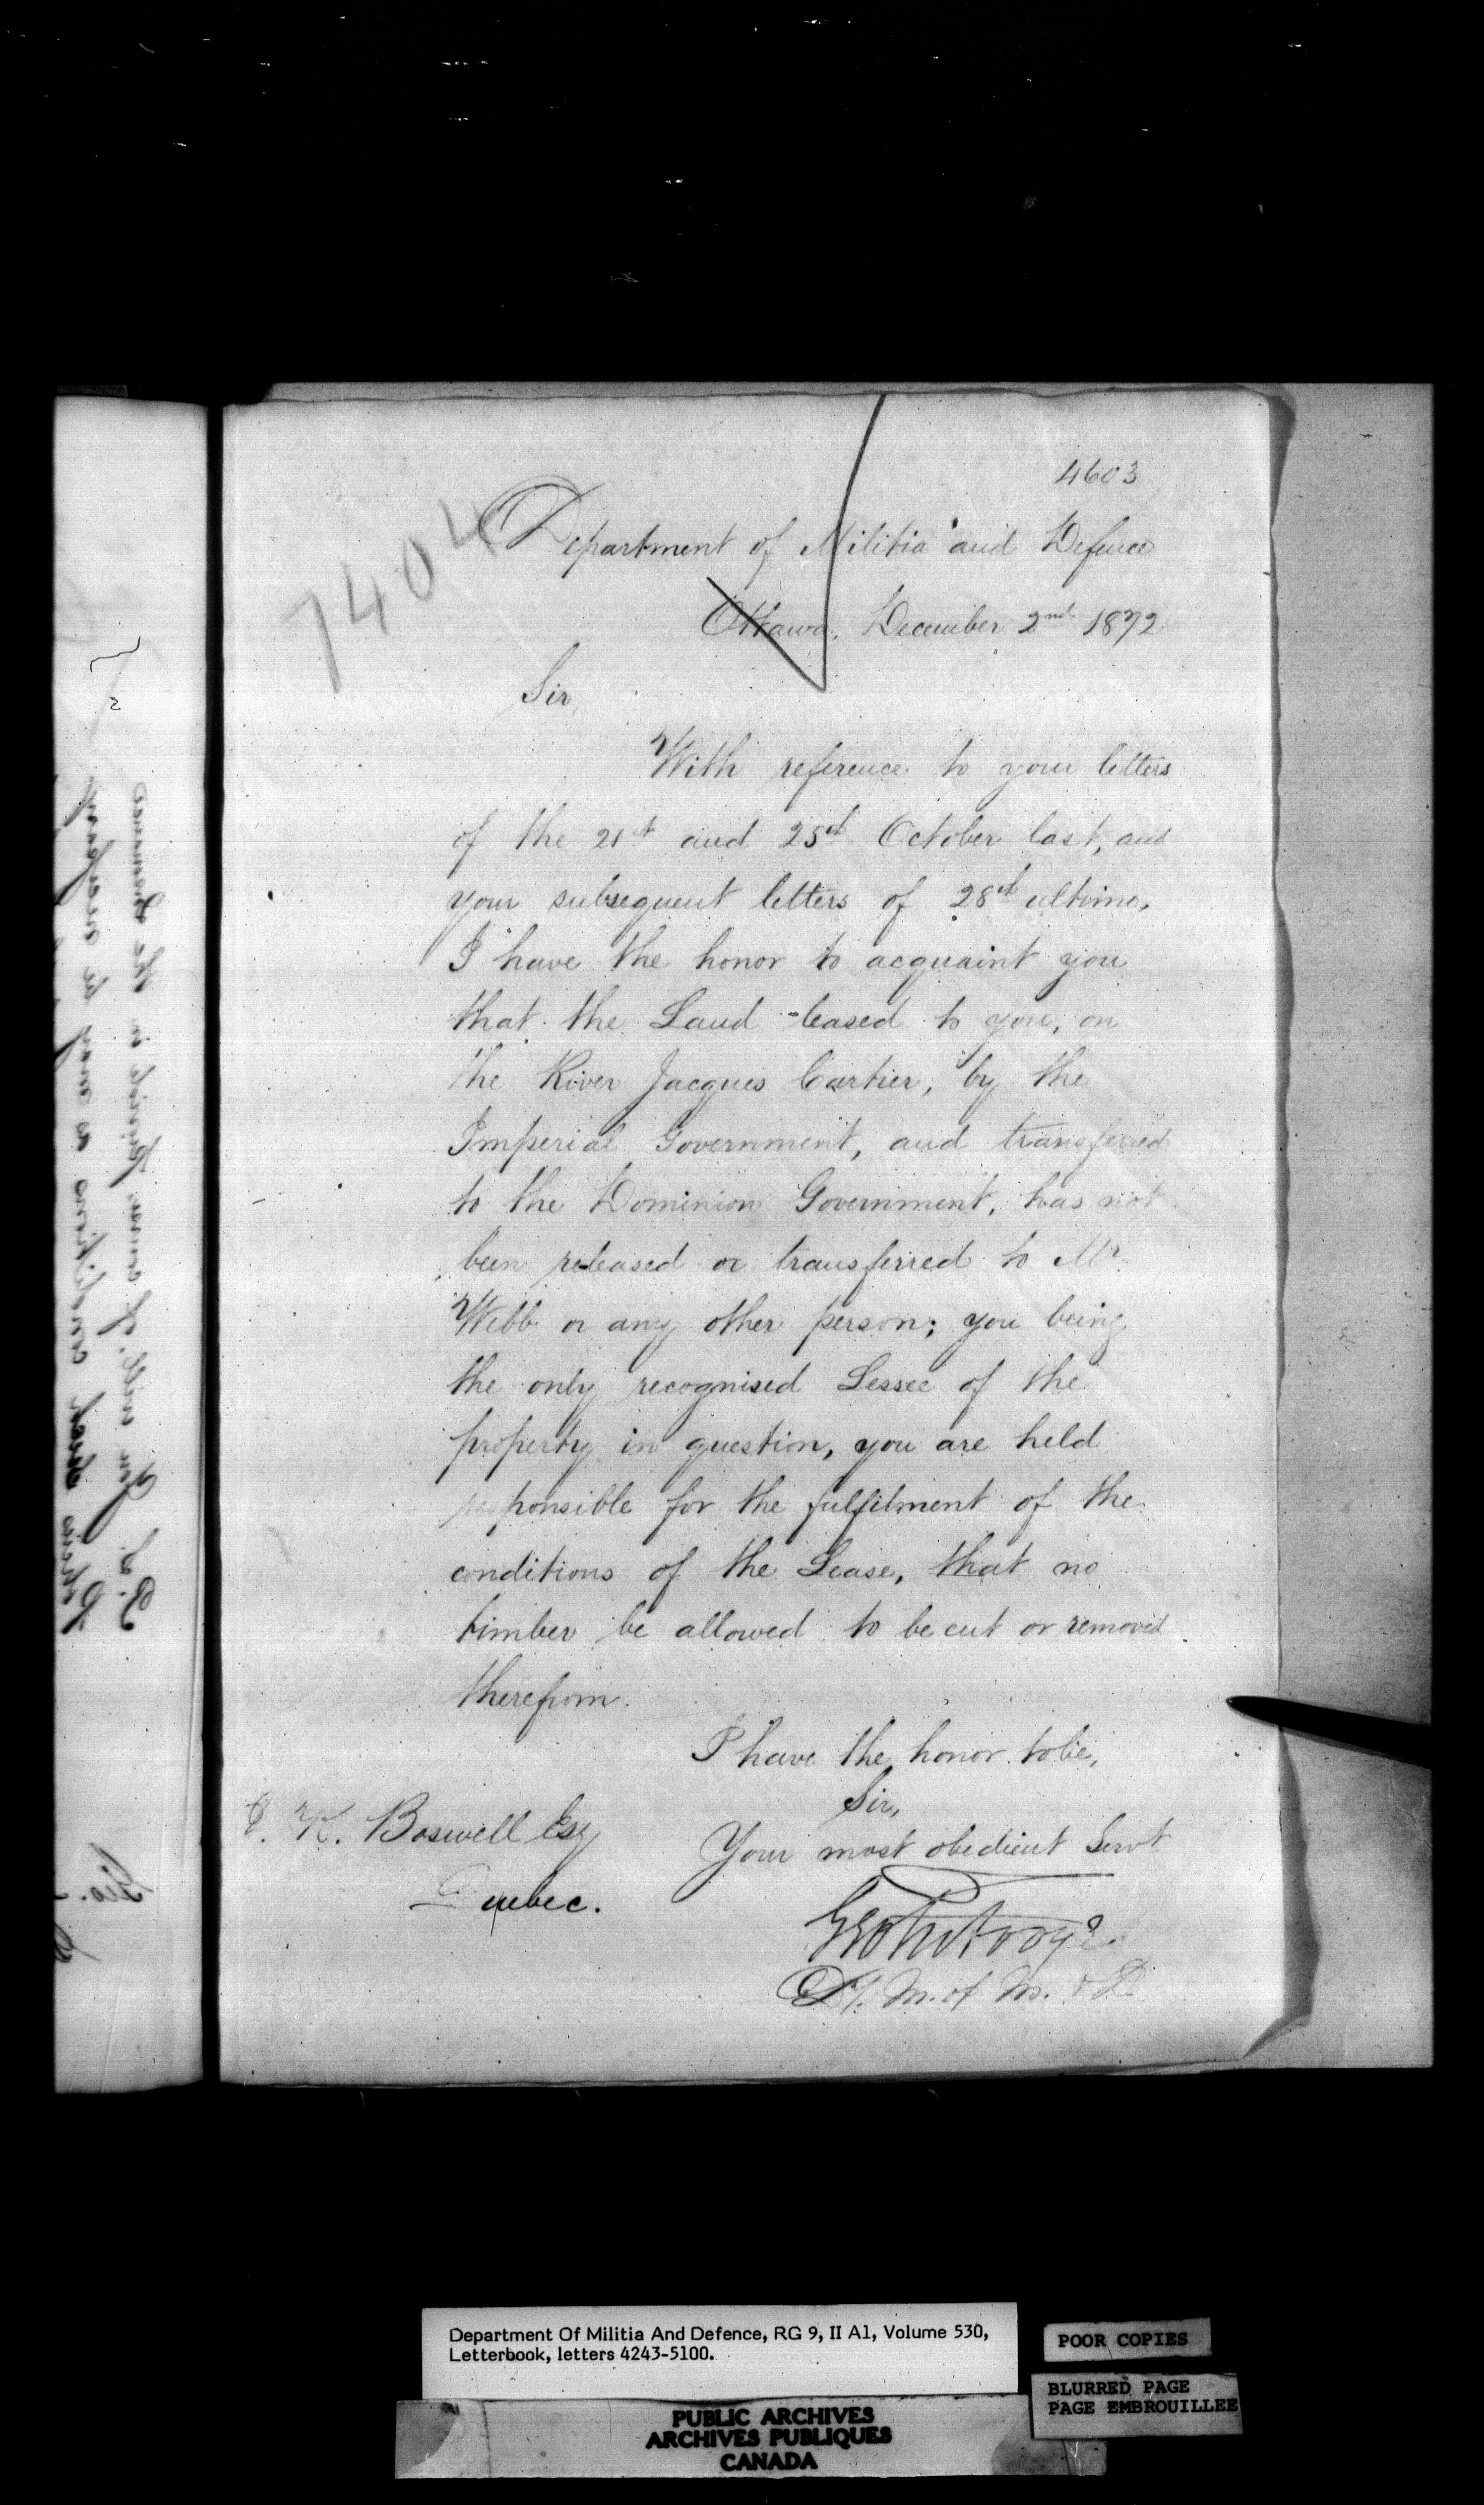 4603
7404
Department of Militia and Defence
Ottawa, December 2nd 1872
Sir,
With reference to your letters
of the 21st and 25th October last, and
your subsequent letters of 28th ultimo,
I have the honor to acquaint you
that the Land leased to you, on
the River Jacques Cartier, by the
Imperial Government, and transferred
to the Dominion Government, has not
been released or transferred to Mr
Webb or any other person; you being
the only recognised Lessee of the
property in question, you are held
responsible for the fulfilment of the
conditions of the Lease, that no
timber be allowed to be cut or removed
therefrom.
I have the honor to be,
Sir,
Your most obedient Servt
K. Boswell Esq
Quebec.
D. M. of M. & D
Department Of Militia And Defence, RG 9, II A1, Volume 530,
Letterbook, letters 4243-5100.
POOR COPIES
BLURRED PAGE
PAGE EMBROUILLEE
PUBLIC ARCHIVES
ARCHIVES PUBLIQUES
CANADA